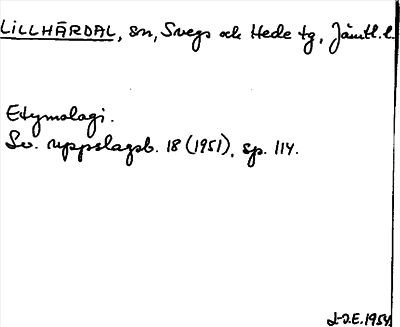 LILLHÄRDAL, sn, Svegs och Hede tg, Jämtl. l.
Etymologi.
Sv. uppslagsb. 18 (1951), sp. 114.
J-J.E. 1954